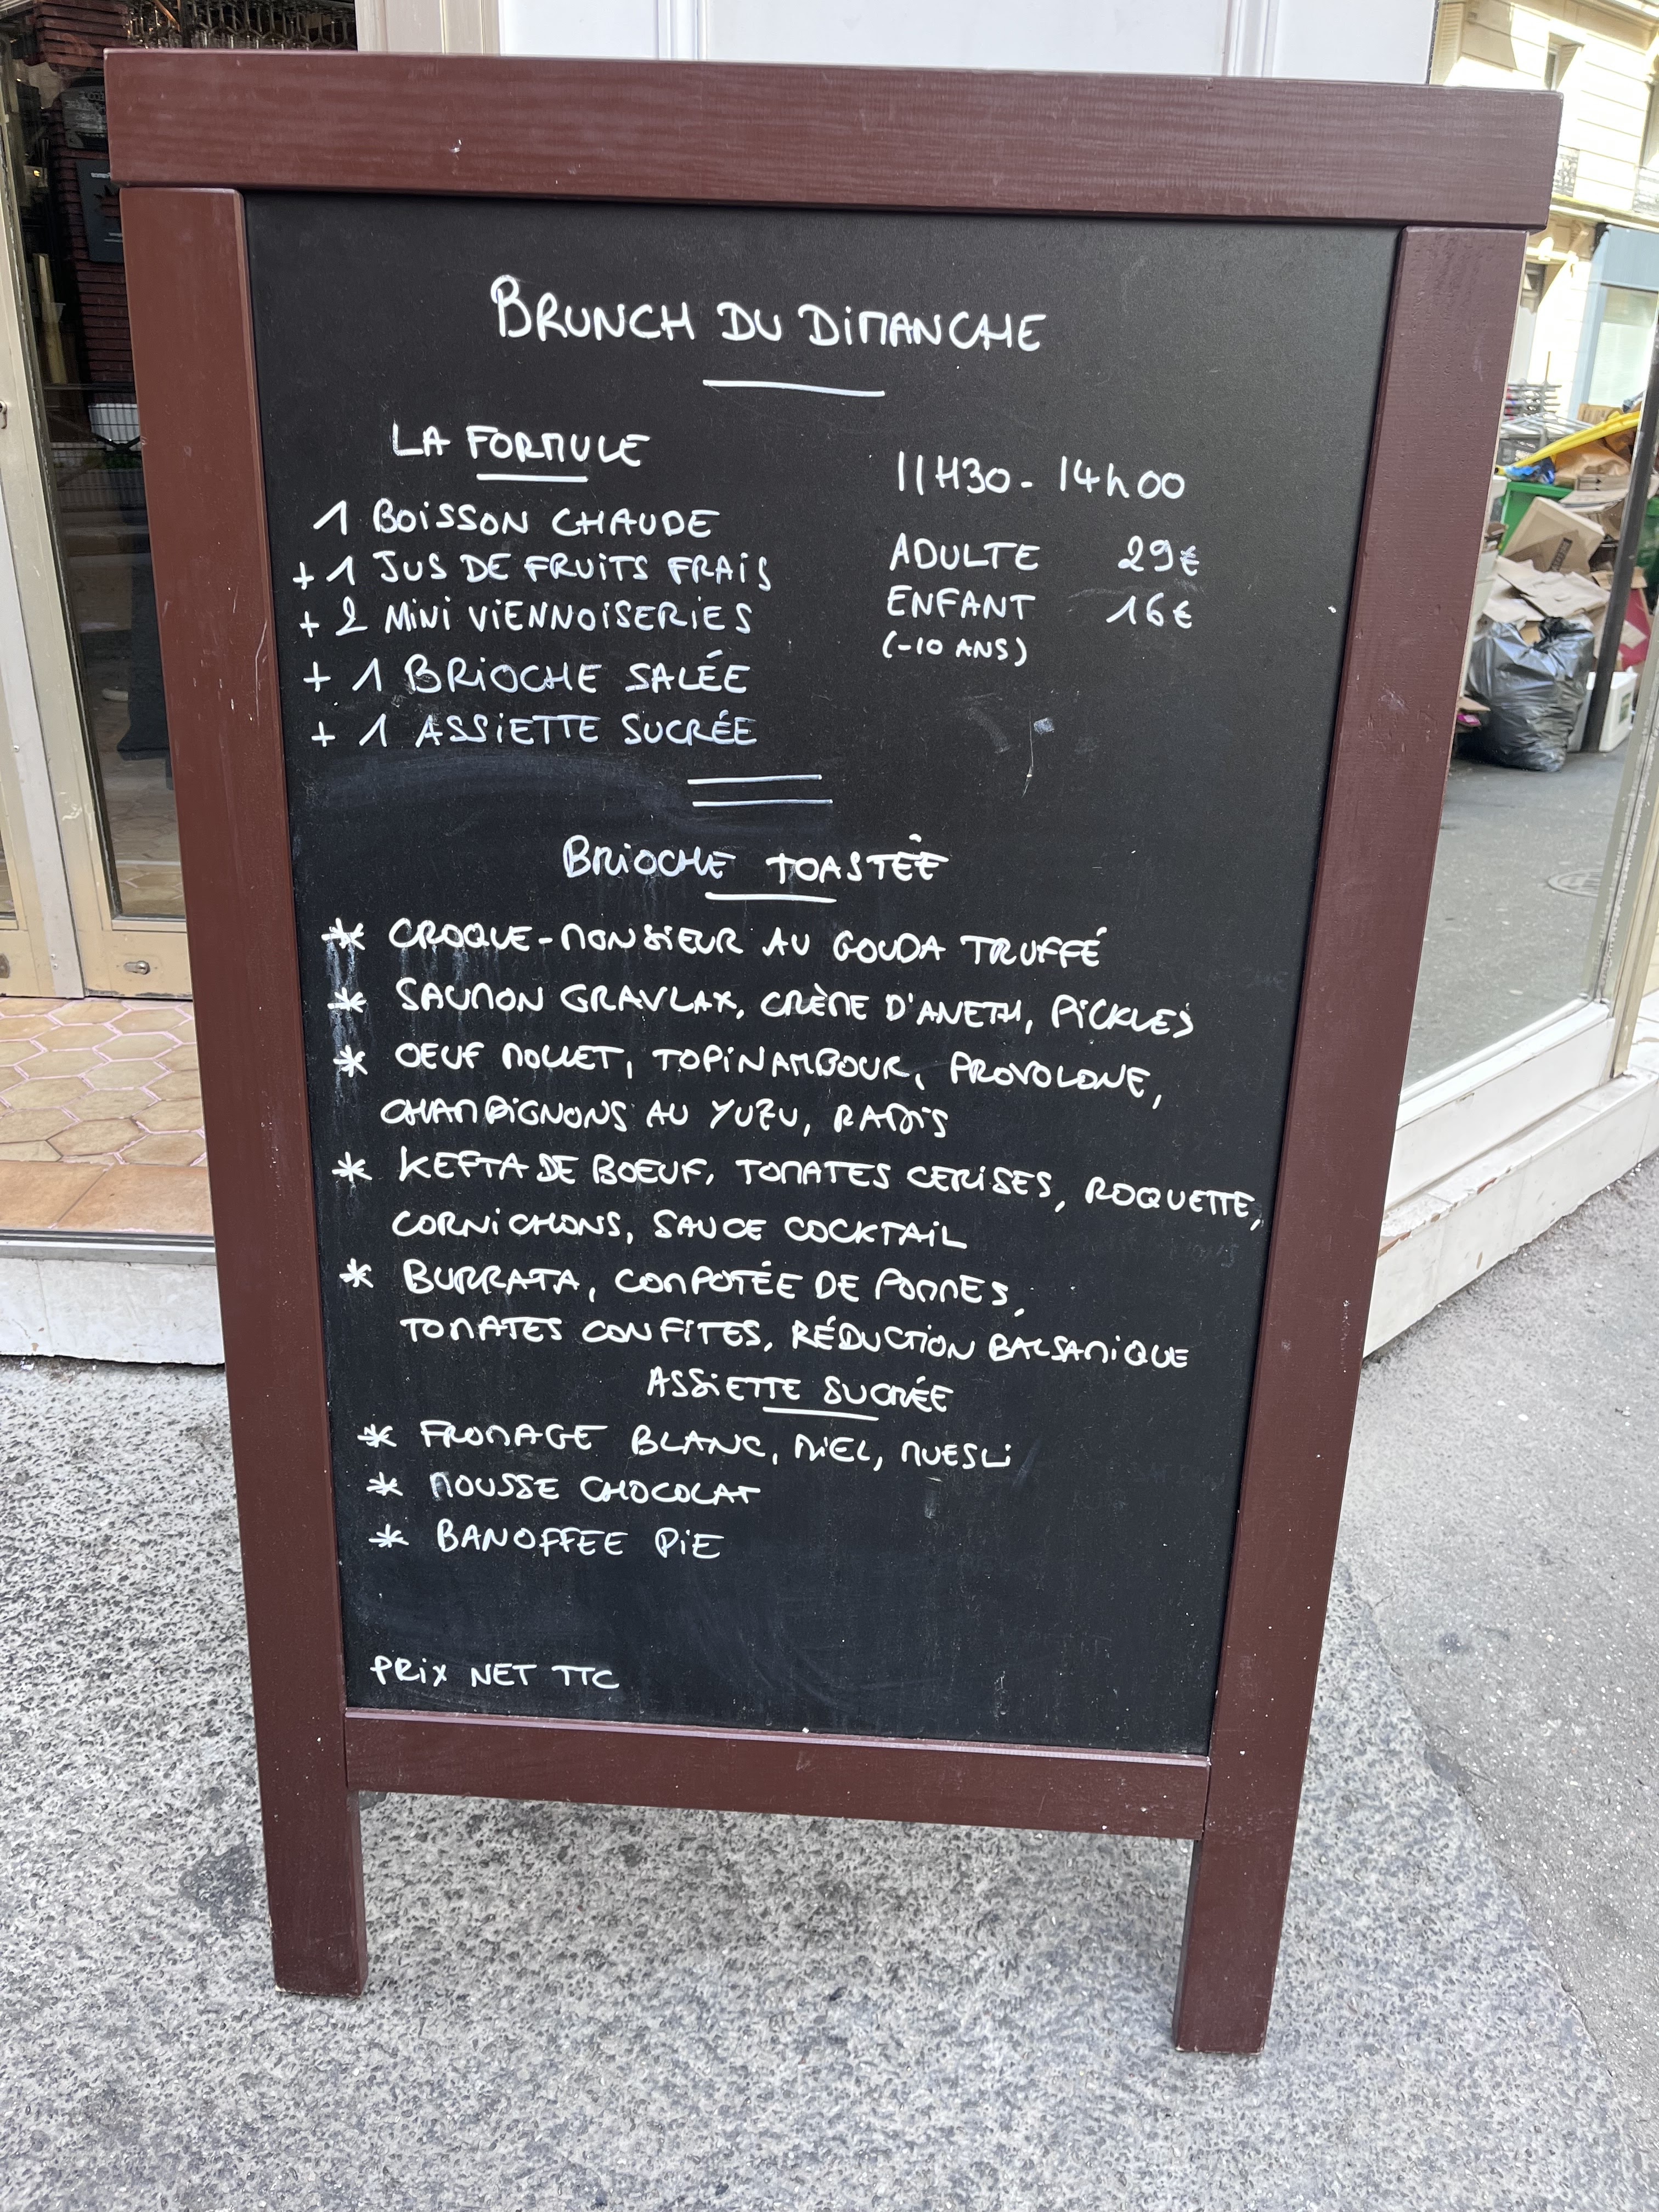 BRUNCH DU DIMANCHE
LA FORMULE
1 BOISSON CHAUDE
+ 1 JUS DE FRUITS FRAIS
+ 2 MINI VIENNOISERIES
+ 1 BRIOCHE SALÉE
+ 1 ASSIETTE SUCRÉE
11H30 - 14h00
ADULTE 29€
ENFANT 16€
(-10 ANS)
BRIOCHE TOASTÉE
* CROQUE-MONSIEUR AU GOUDA TRUFFÉ
* SAUMON GRAVLAX, CRÈME D'ANETH, PICKLES
* OEUF MOLLET, TOPINAMBOUR, PROVOLONE,
CHAMPIGNONS AU YUZU, RADIS
* KEFTA DE BOEUF, TOMATES CERISES, ROQUETTE,
CORNICHONS, SAUCE COCKTAIL
* BURRATA, COMPOTÉE DE POMMES,
TOMATES CONFITES, RÉDUCTION BALSAMIQUE
ASSIETTE SUCRÉE
* FROMAGE BLANC, MIEL, MUESLI
* MOUSSE CHOCOLAT
* BANOFFEE PIE
PRIX NET TTC